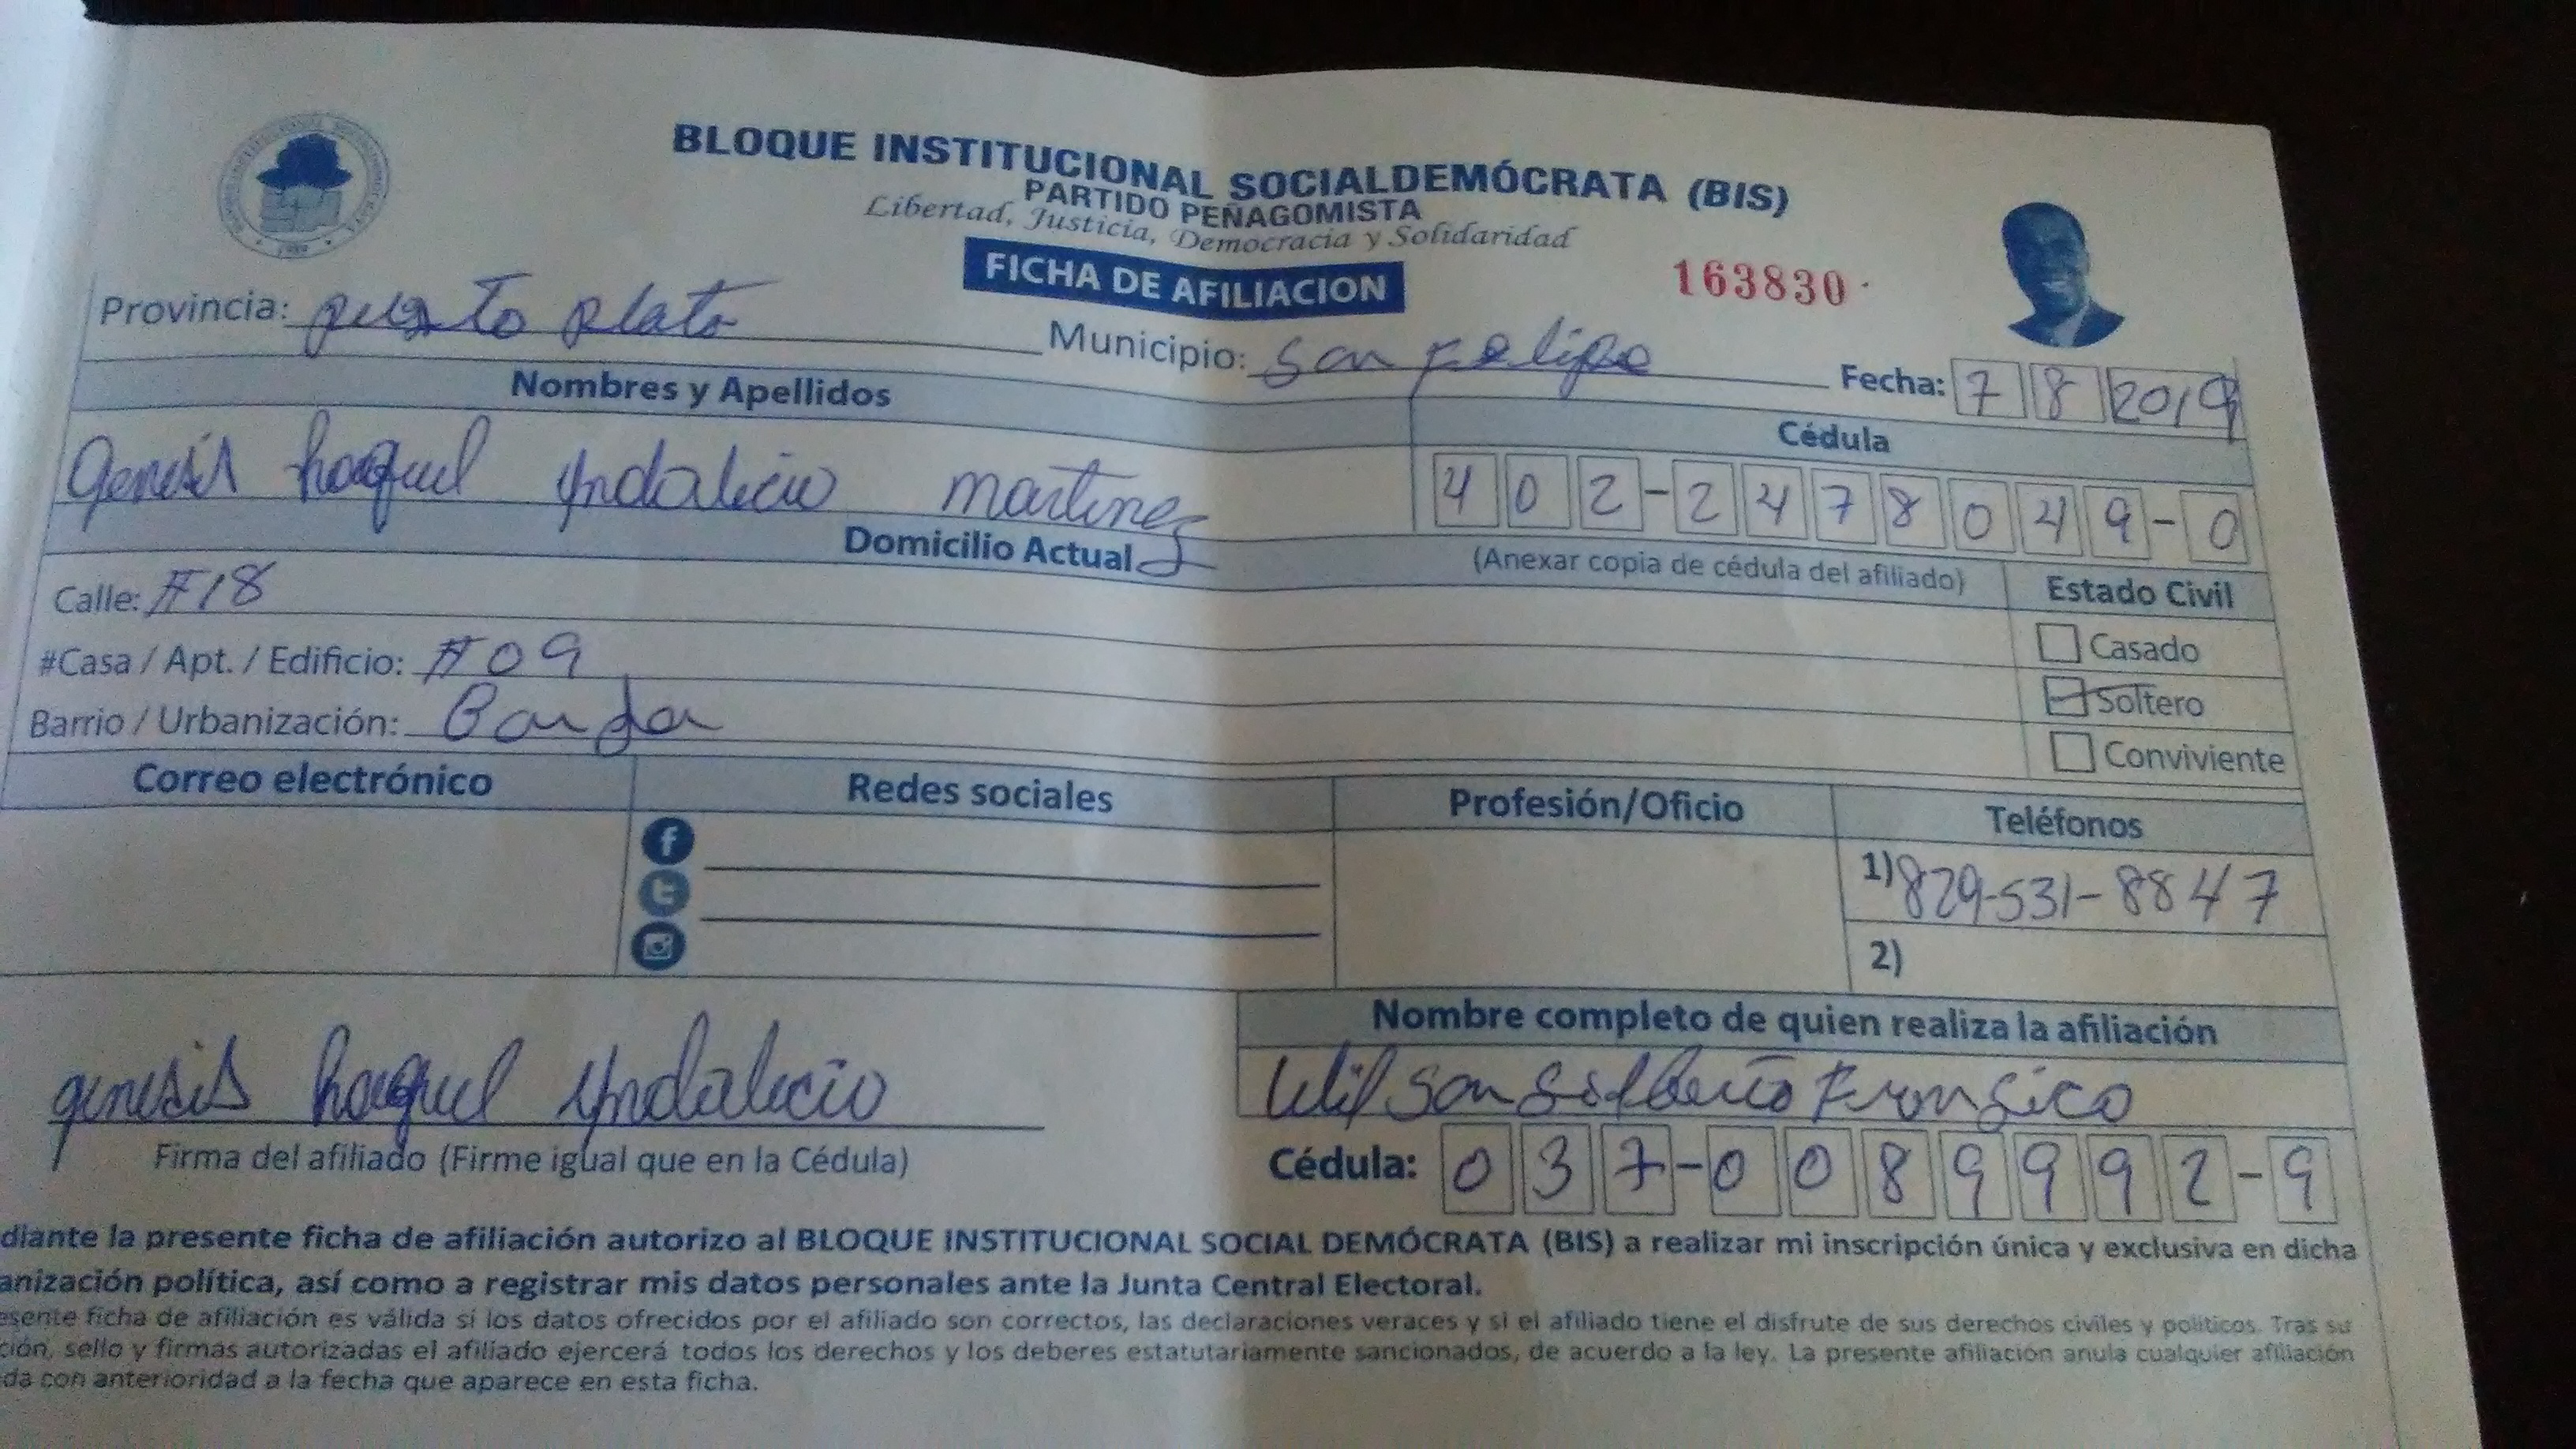 BLOQUE INSTITUCIONAL SOCIALDEMÓCRATA (BIS)
PARTIDO PEÑAGOMISTA
Libertad, Justicia, Democracia y Solidaridad
FICHA DE AFILIACION
163830
Provincia: puerto plata
Municipio: san Felipe
Fecha: 7 8 2019
Nombres y Apellidos
Cédula
genesis haquel yndalicio martinez
402-2478049-0
Domicilio Actual
(Anexar copia de cédula del afiliado)
Estado Civil
Calle: #18
Casado
#Casa / Apt. / Edificio: #09
Soltero
Barrio / Urbanización:
Conviviente
Correo electrónico
Redes sociales
Profesión/Oficio
Teléfonos
1) 829-531-8847
2)
Nombre completo de quien realiza la afiliación
genesis haquel yndalicio
Wilson
Firma del afiliado (Firme igual que en la Cédula)
Cédula: 037-0089992-9
diante la presente ficha de afiliación autorizo al BLOQUE INSTITUCIONAL SOCIAL DEMÓCRATA (BIS) a realizar mi inscripción única y exclusiva en dicha
anización política, así como a registrar mis datos personales ante la Junta Central Electoral.
esente ficha de afiliación es válida si los datos ofrecidos por el afiliado son correctos, las declaraciones veraces y si el afiliado tiene el disfrute de sus derechos civiles y políticos. Tras su
ción, sello y firmas autorizadas el afiliado ejercerá todos los derechos y los deberes estatutariamente sancionados, de acuerdo a la ley. La presente afiliación anula cualquier afiliación
da con anterioridad a la fecha que aparece en esta ficha.